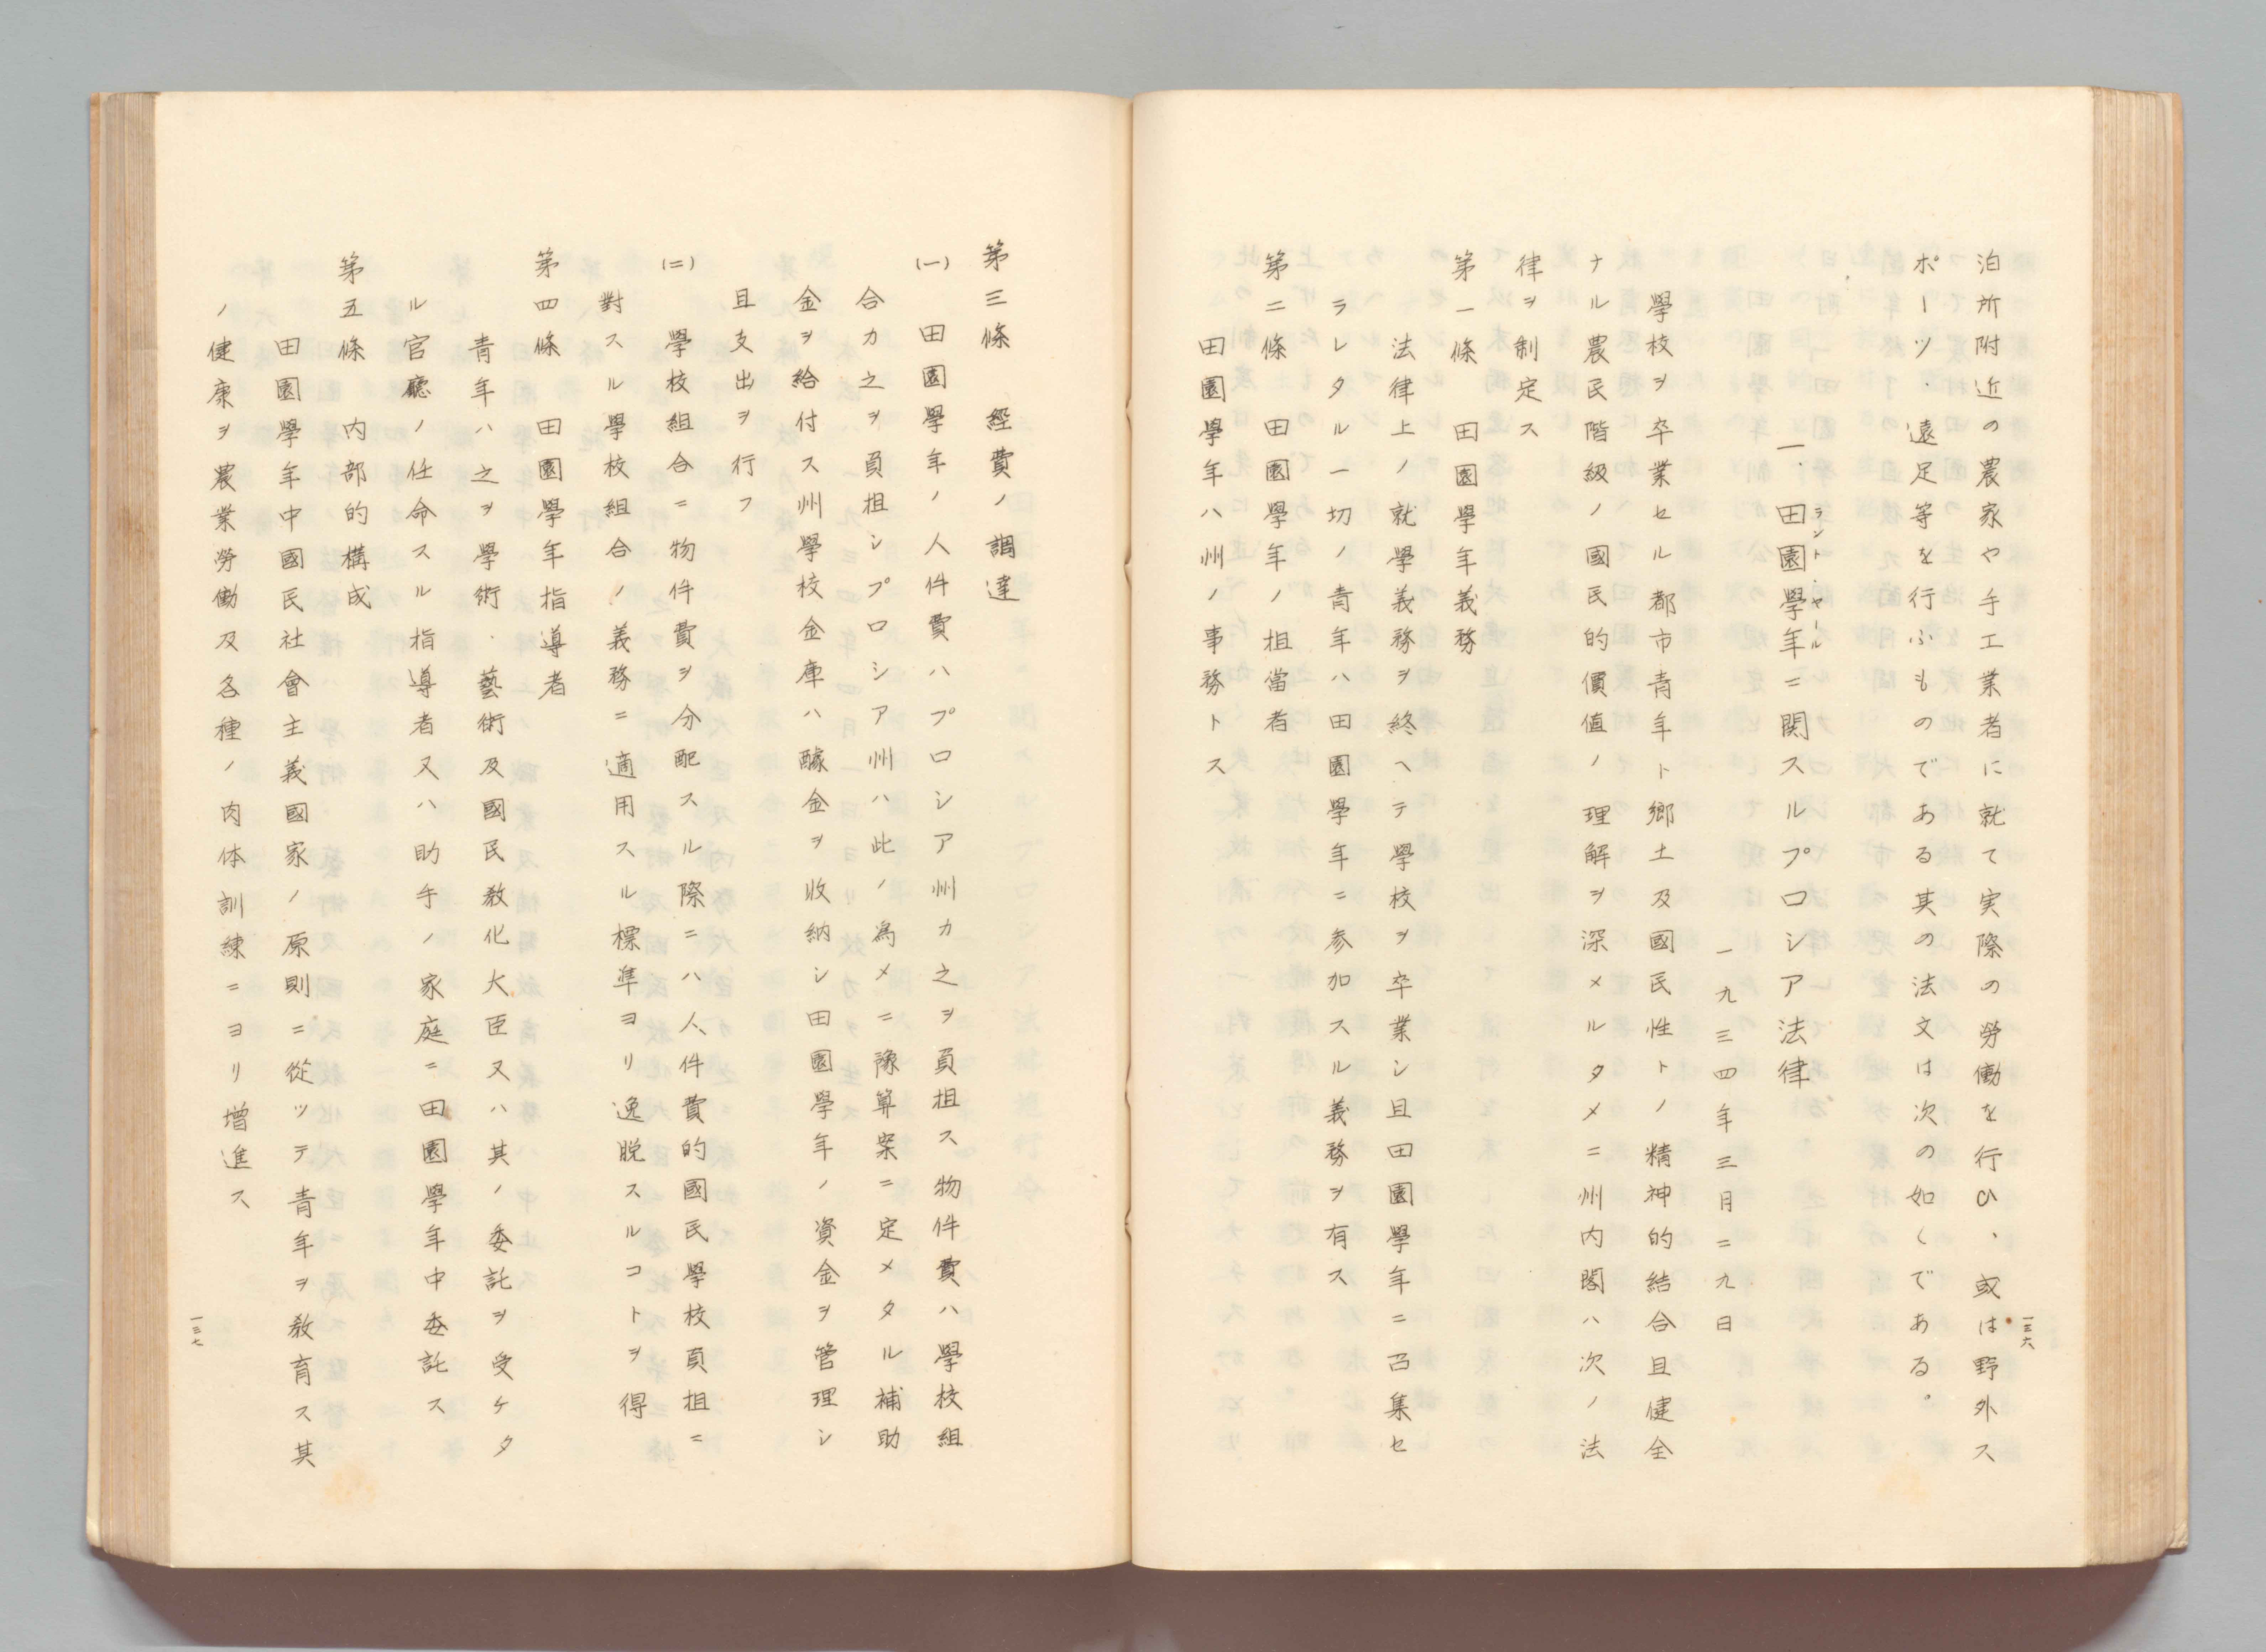 泊所附近の農家や手工業者に就て実際の労働を行ひ、或は野外ス
ポーツ・遠足等を行ふものである其の法文は次の如くである。
一、田園學年ニ関スルプロシア法律
ラント・ヤール
一九三四年三月二九日
學校ヲ卒業セル都市青年ト郷土及國民性トノ精神的結合且健全
ナル農民階級ノ國民的價値ノ理解ヲ深メルタメニ州内閣ハ次ノ法
律ヲ制定ス
第一條　田園學年義務
法律上ノ就學義務ヲ終ヘテ學校ヲ卒業シ且田園學年ニ召集セ
ラレタル一切ノ青年ハ田園學年ニ参加スル義務ヲ有ス
第二條　田園學年ノ担當者
田園學年ハ州ノ事務トス
一三六
第三條　経費ノ調達
(一)　田園學年ノ人件費ハプロシア州カ之ヲ負担ス物件費ハ學校組
合カ之ヲ負担シプロシア州ハ此ノ為メニ豫算案ニ定メタル補助
金ヲ給付ス州學校金庫ハ醵金ヲ收納シ田園學年ノ資金ヲ管理シ
且支出ヲ行フ
(二)　學校組合ニ物件費ヲ分配スル際ニハ人件費的國民學校負担ニ
對スル學校組合ノ義務ニ適用スル標準ヨリ逸脱スルコトヲ得
第四條　田園學年指導者
青年ハ之ヲ學術・藝術及國民教化大臣又ハ其ノ委託ヲ受ケタ
ル官廳ノ任命スル指導者又ハ助手ノ家庭ニ田園學年中委託ス
第五條　内部的構成
田園學年中國民社會主義國家ノ原則ニ從ッテ青年ヲ教育ス其
ノ健康ヲ農業勞働及各種ノ肉体訓練ニヨリ増進ス
一三七